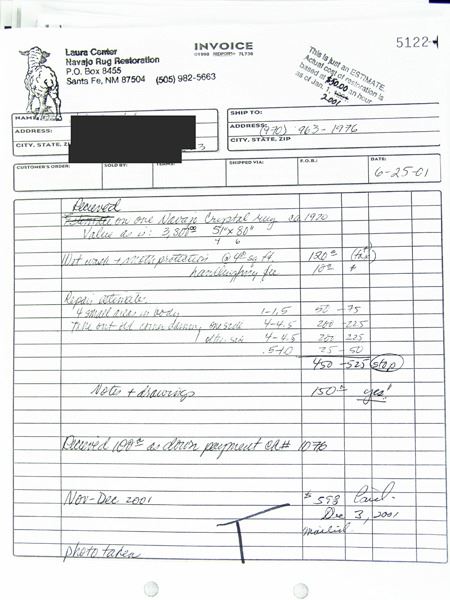 Laura Center
Navajo Rug Restoration
P.O. Box 8455
Santa Fe, NM 87504 (505) 982-5663
INVOICE
5122-1
This is just an ESTIMATE.
Actual cost of restoration is
based at $50.00 an hour
as of Jan. 1, 2001
NAME
ADDRESS:
CITY, STATE, ZIP
3
SHIP TO:
ADDRESS:
(970) 963-1976
CITY, STATE, ZIP
CUSTOMER'S ORDER:
SOLD BY:
TERMS:
SHIPPED VIA:
F.O.B.:
DATE:
6-25-01
Received
Estimate on one Navajo Crystal rug ca 1920
Value as is: 3,800.00 51" x 80"
4 6
Wet wash + moth protection @ 4.00 sq ft. 120.00 (tax)
handling fee 10.00 +
Repair estimate:
4 small areas in body 1-1.5 50 -75
Take out old corner one side 4-4.5 200 -225
other side 4-4.5 200 -225
.5-1.0 25-50
450 -525 stop
Notes + drawings 150.00 yes!
Received 100.00 as down payment ck# 1076
Nov-Dec 2001
$593 Paid.
Dec 3, 2001
mailed.
photo taken